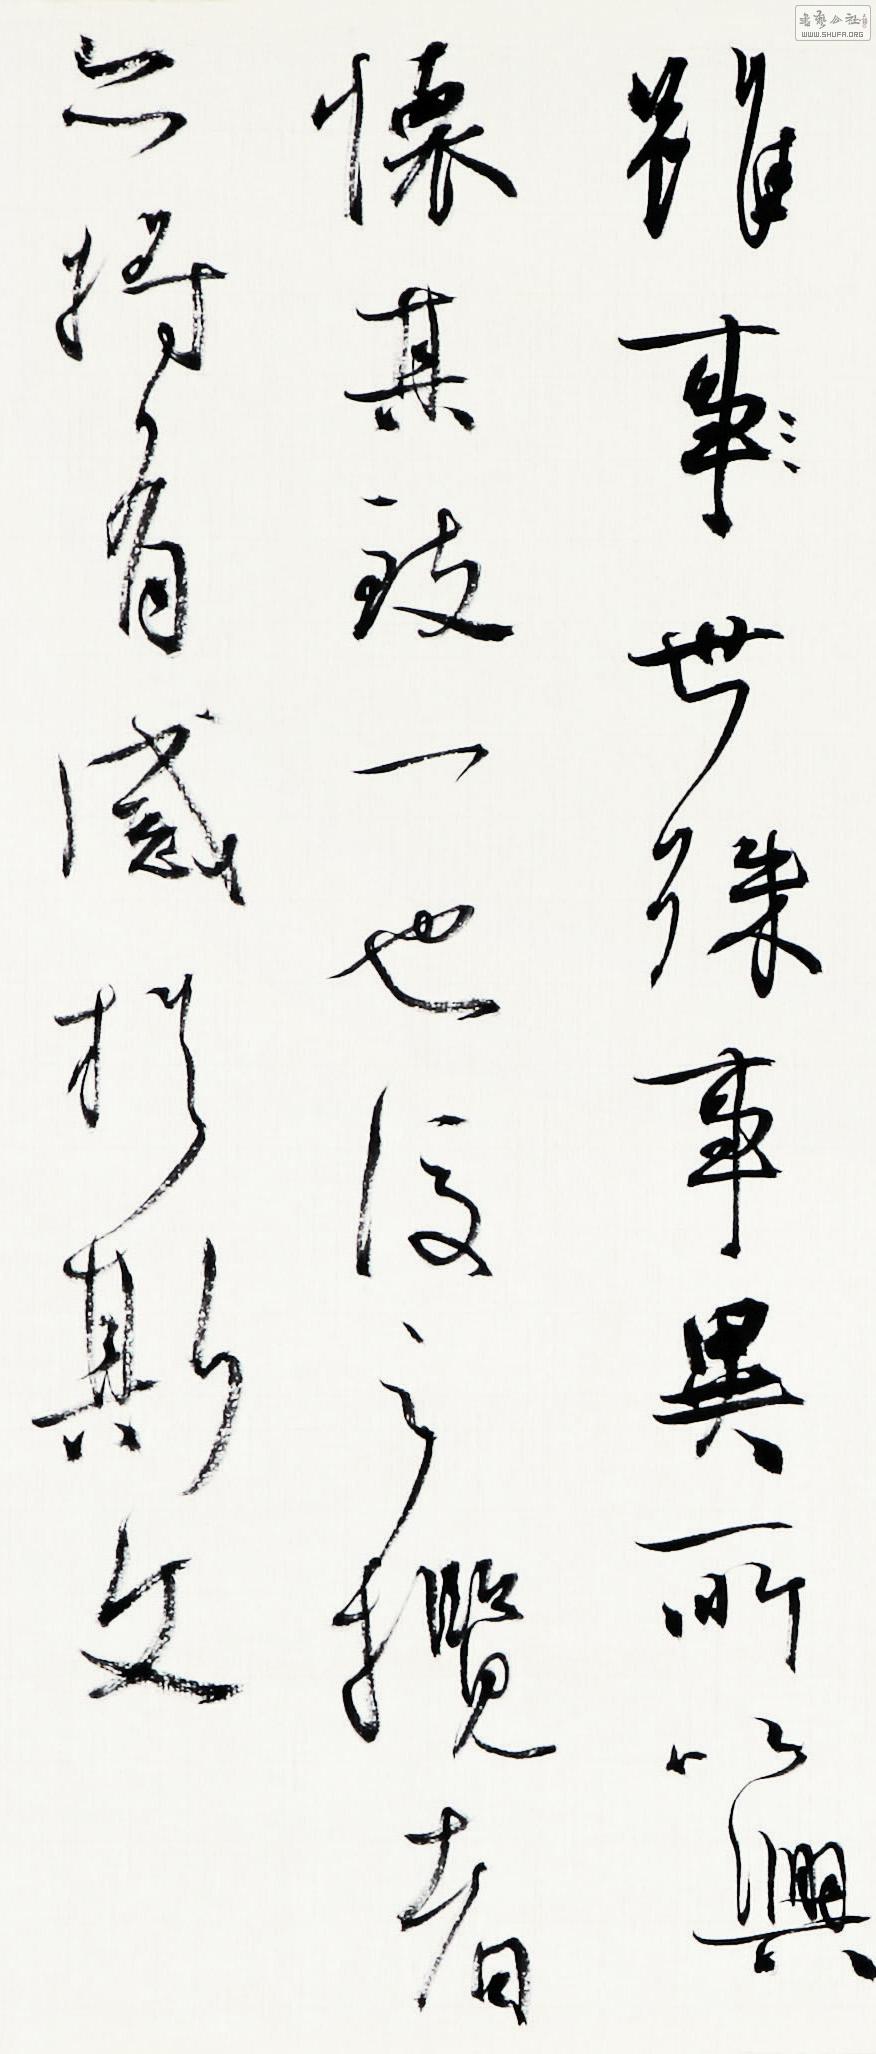 雖事世殊事異所以興
懷其致一也後之攬者
亦將有感於斯文
書藝公社
WWW.SHUFA.ORG